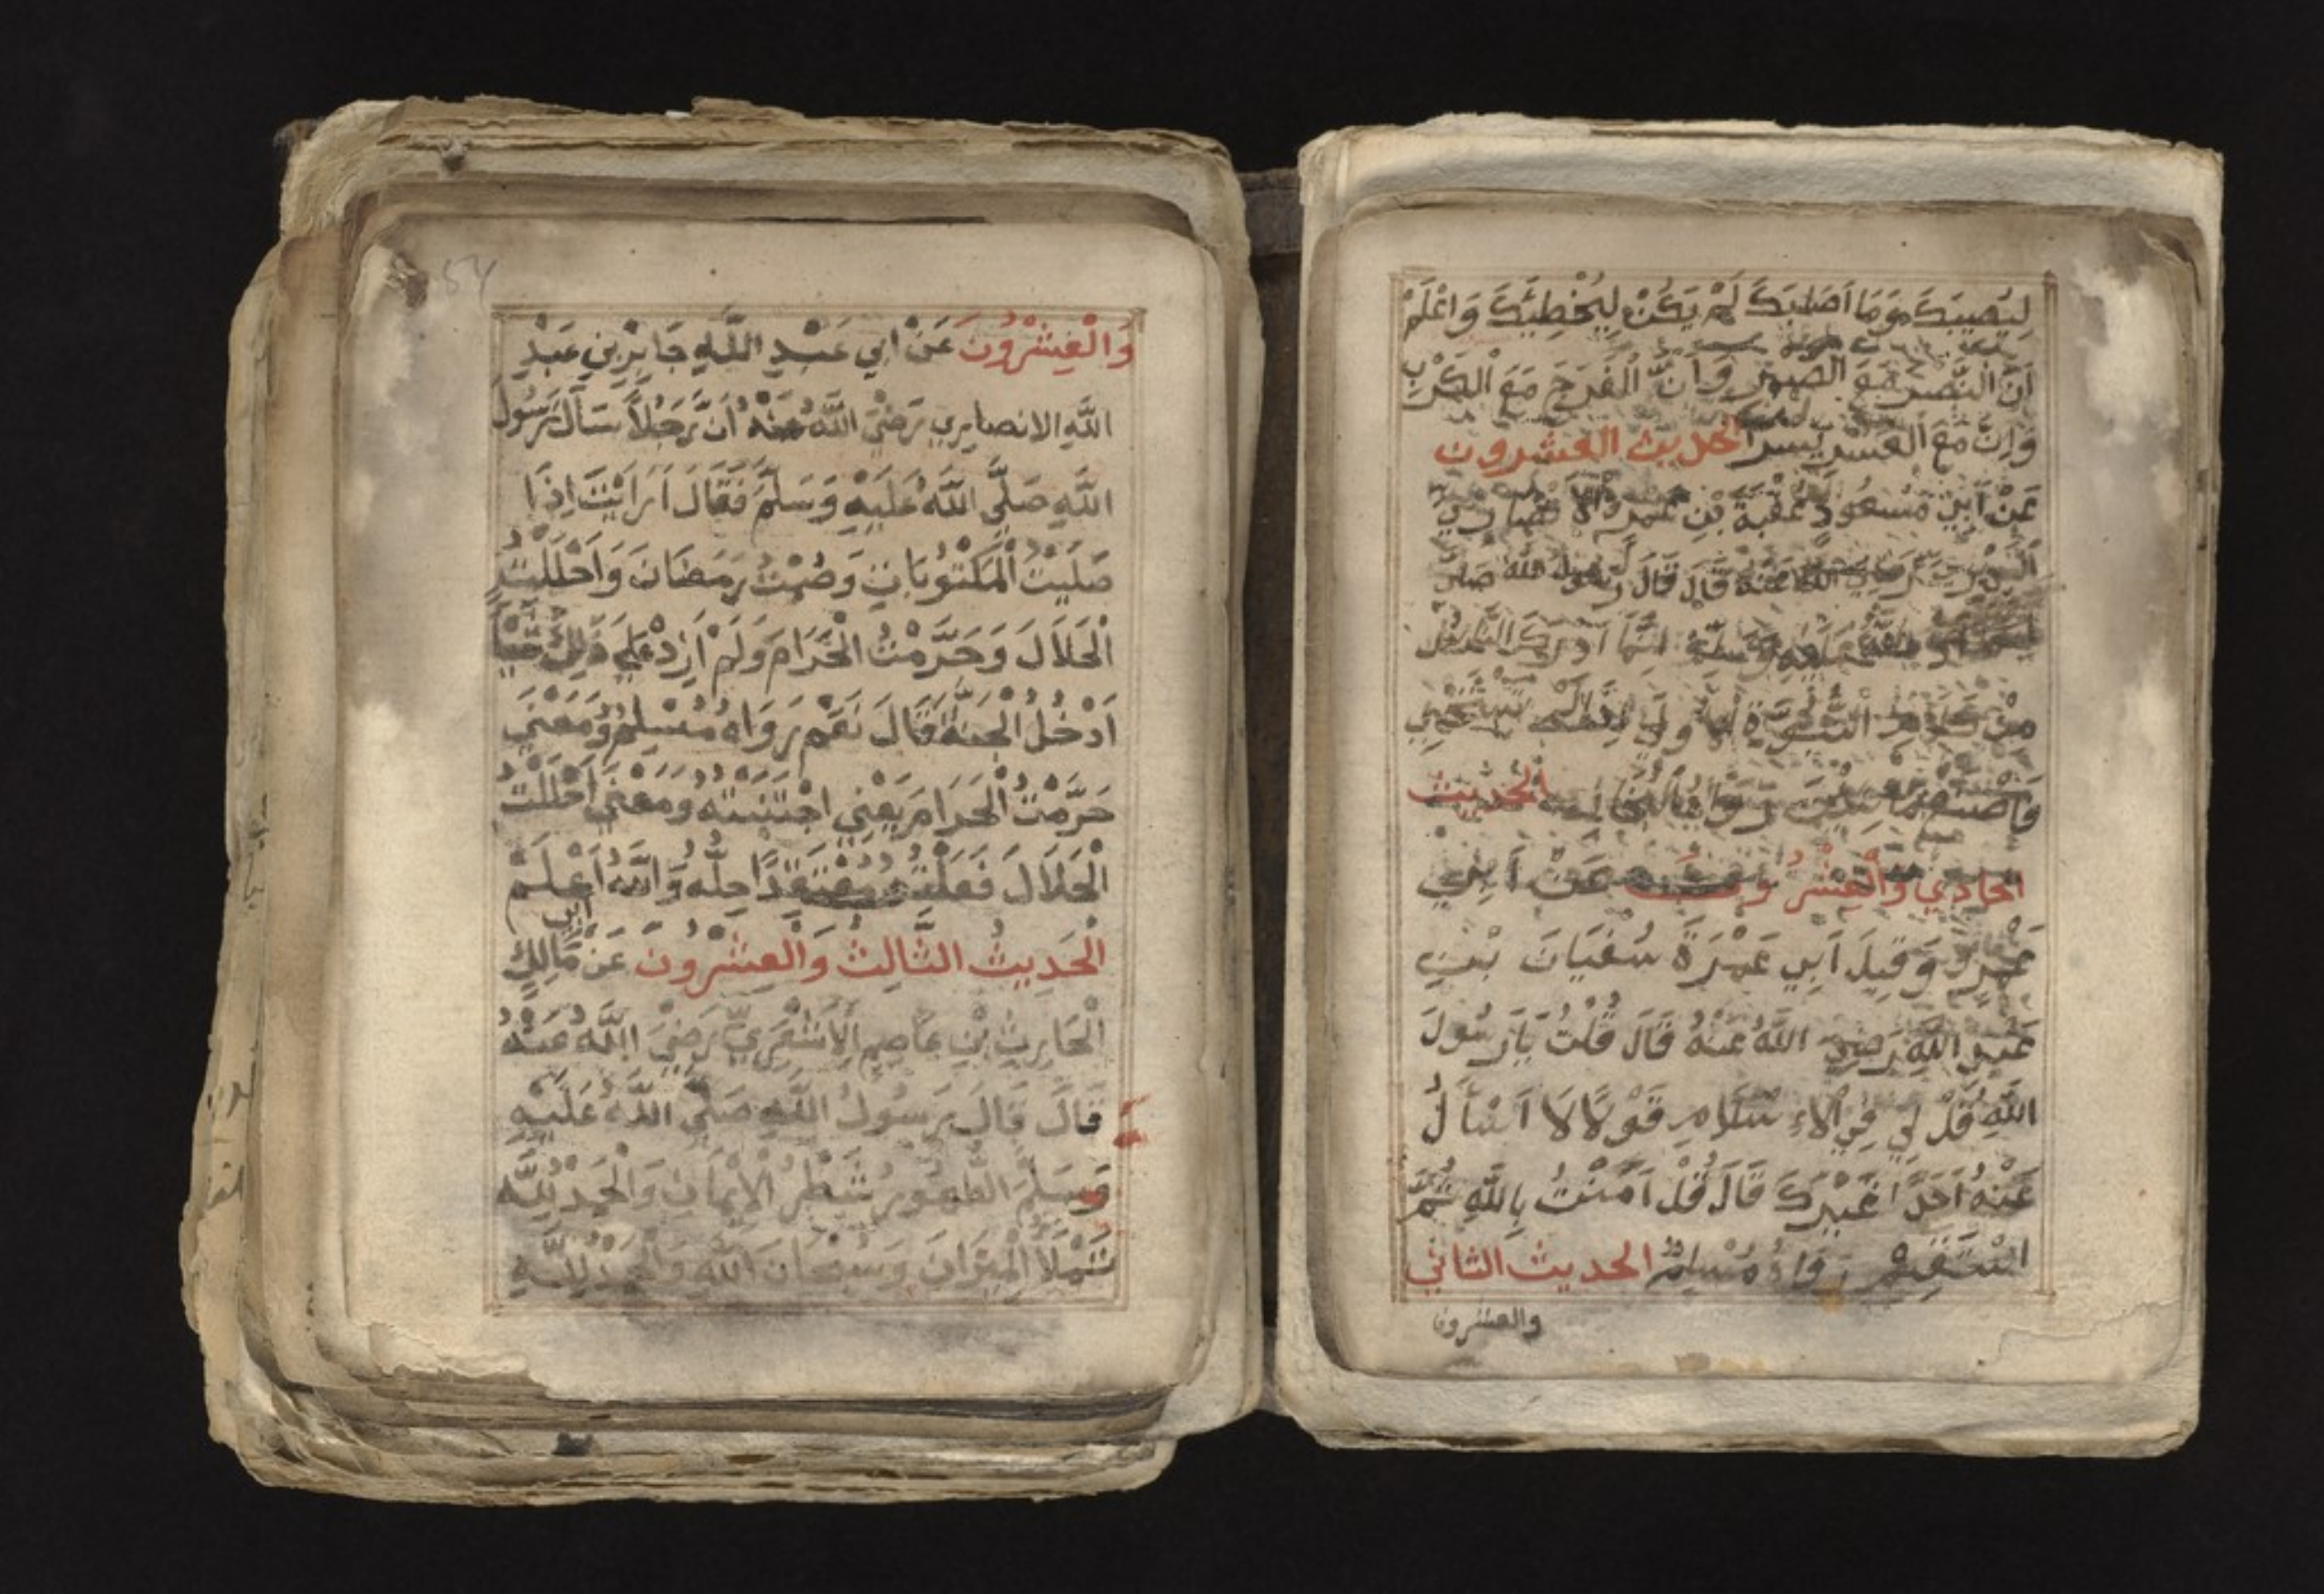 لِيُصِيبَكَ وَمَا اَصَابَكَ لَمْ يَكُنْ لِيُخْطِئَكَ وَاعْلَمْ
اَنَّ النَّصْرَ مَعَ الصبر وَاَنَّ الْفَرَجَ مَعَ الْكَرْبِ
وَاِنَّ مَعَ الْعُسْرِ يُسْرًا الحديث العشرون
عَنْ اَبِيْ مَسْعُودٍ عُقْبَةَ بْنِ عَمْرٍو الْاَنْصَارِيِّ
رَضِيَ اللَّهُ عَنْهُ قَالَ قَالَ رَسُولُ اللهِ صَلَّى
اللَّهُ عَلَيْهِ وَسَلَّمَ اِنَّمَا اَدْرَكَ النَّاسُ
مِنْ كَلَامِ النُّبُوَّةِ الْاُولَى تَسْتَحْيِي
فَاصْنَعْ مَا شِئْتَ رَوَاهُ الْبُخَارِي الْحَدِيْثُ
الحَادِي وَالْعِشْرُونَ عَنْ اَبِيْ
عَمْرٍو وَقِيلَ اَبِي عَمْرَةَ سُفْيَانَ بْنِ
عَبْدِ اللَّهِ رَضِيَ اللَّهُ عَنْهُ قَالَ قُلْتُ يَارَسُولَ
اللَّهِ قُلْ لِي فِي الْاِسْلَامِ قَوْلًا لَا اَسْأَلُ
عَنْهُ اَحَدًا غَيْرَكَ قَالَ قُلْ آمَنْتُ بِاللَّهِ ثُمَّ
اسْتَقِمْ رَوَاهُ مُسْلِمٌ الحديث الثاني
والعشرون
وَالْعِشْرُونَ عَنْ اَبِي عَبْدِ اللَّهِ جَابِرِ بْنِ عَبْدِ
اللَّهِ الانصارِي رَضِيَ اللَّهُ عَنْهُ اَنَّ رَجُلًا سَاَلَ رَسُولَ
اللَّهِ صَلَّى اللَّهُ عَلَيْهِ وَسَلَّمَ فَقَالَ اَرَاَيْتَ اِذَا
صَلَّيْتُ الْمَكْتُوبَاتِ وَصُمْتُ رَمَضَانَ وَاَحْلَلْتُ
الْحَلَالَ وَحَرَّمْتُ الْحَرَامَ وَلَمْ اَزِدْ عَلَى ذَلِكَ شَيْاً
اَدْخُلُ الْجَنَّةَ قَالَ نَعَمْ رَوَاهُ مُسْلِمٌ وَمَعْنَى
حَرَّمْتُ الْحَرَامَ يَعْنِي اجْتَنَبْتُهُ وَمَعْنَى اَحْلَلْتُ
الْحَلَالَ فَعَلْتُهُ مُعْتَقِدًا حِلَّهُ وَاللَّهُ اَعْلَمُ
الْحَدِيثُ الثَّالِثُ وَالْعِشْرُونَ عَنْ اَبِي مَالِكٍ
الْحَارِثِ بْنِ عَاصِمٍ الْاَشْعَرِيِّ رَضِيَ اللَّهُ عَنْهُ
قَالَ قَالَ رَسُولُ اللَّهِ صَلَّى اللَّهُ عَلَيْهِ
وَسَلَّمَ الطُّهُورُ شَطْرُ الْاِيْمَانِ وَالْحَمْدُ لِلَّهِ
تَمْلَأُ الْمِيْزَانَ وَسُبْحَانَ اللَّهِ وَالْحَمْدُ لِلَّهِ